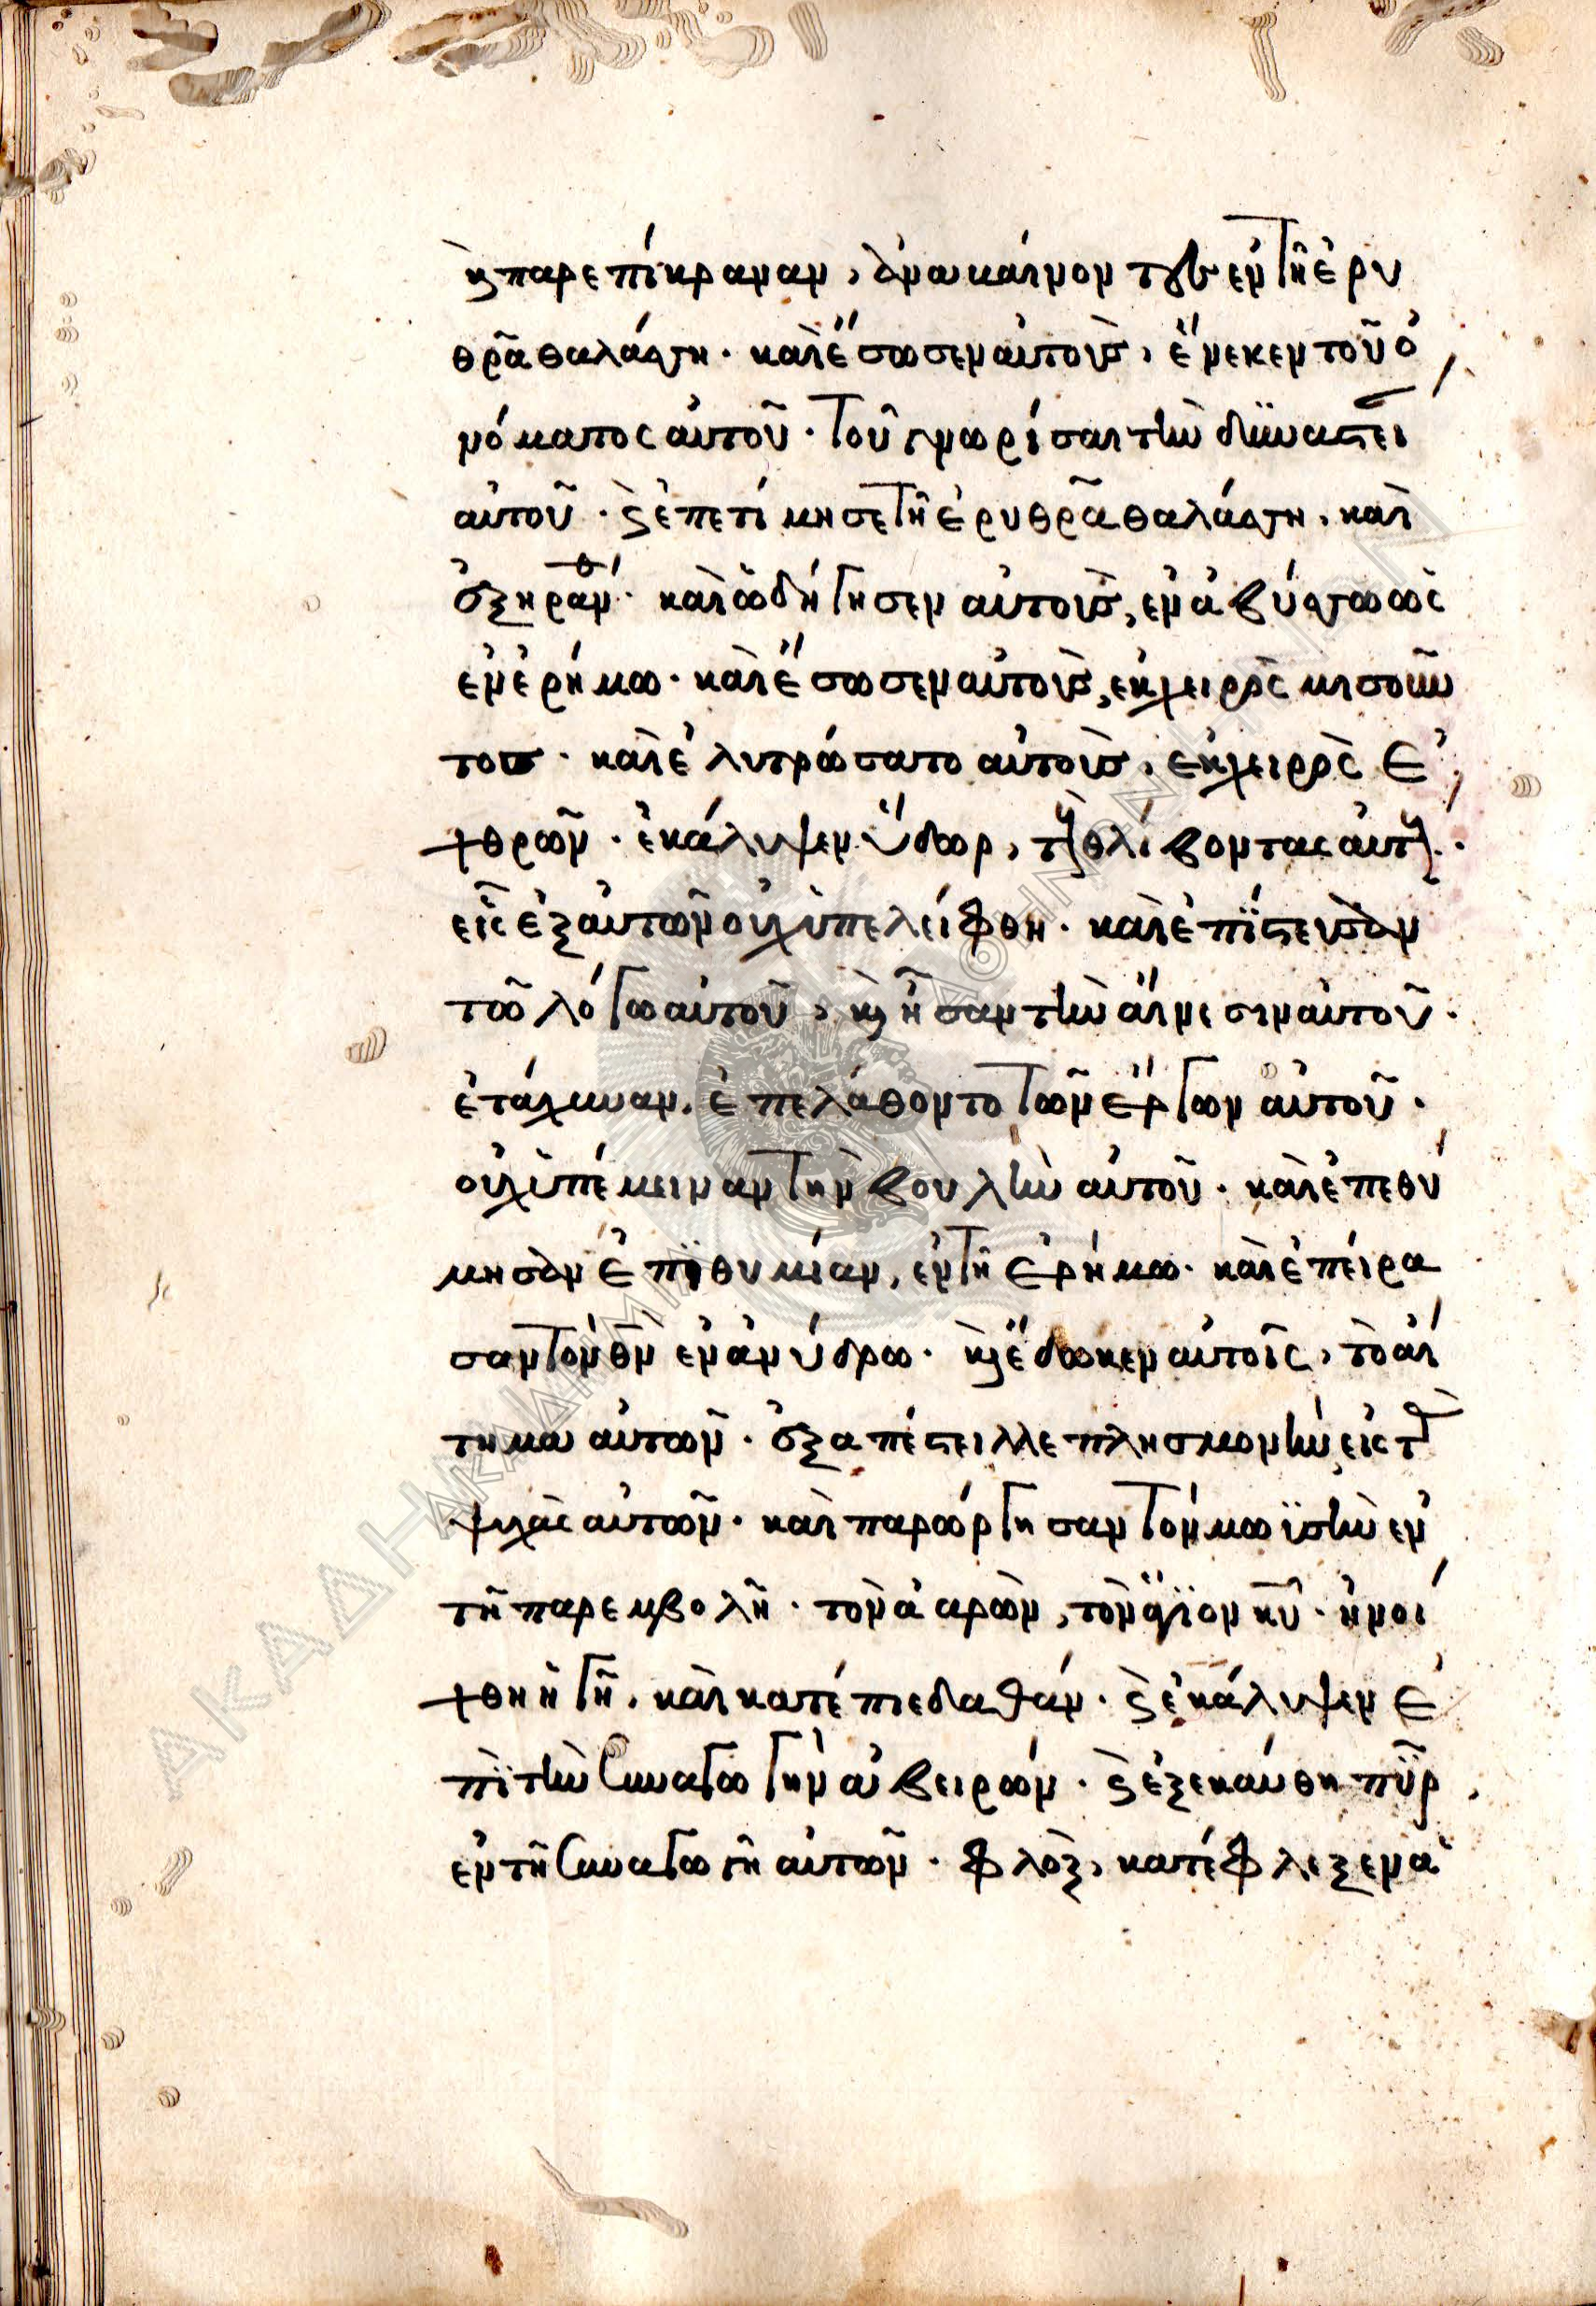 κ παρεπίκραναν, ἀναβαίνοντες ἐν τῆ ἐρυ
θρᾶ θαλάσση· καὶ ἔσωσεν αὐτοὺς, ἕνεκεν τοῦ ὀ
νόματος αὐτοῦ· τοῦ γνωρίσαι τὴν δυναστεί
αὐτοῦ· κ ἐπετίμησε τῆ ἐρυθρᾶ θαλάσση, καὶ
ἐξηράνθ· καὶ ὡδήγησεν αὐτοὺς, ἐν ἀβύσσω ὡς
ἐν ἐρήμω· καὶ ἔσωσεν αὐτοὺς, ἐκ χειρὸς μισοῦν
τος· καὶ ἐλυτρώσατο αὐτοὺς, ἐκ χειρὸς ἐ
χθρῶν· ἐκάλυψεν ὕδωρ, τοὺς θλίβοντας αὐτούς·
εἷς ἐξ αὐτῶν οὐχ ὑπελείφθη· καὶ ἐπίστευσαν
τῶ λόγω αὐτοῦ, κ ἦσαν τὴν αἴνεσιν αὐτοῦ·
ἐτάχυναν, ἐπελάθοντο τῶν ἔργων αὐτοῦ·
οὐχ ὑπέμειναν τὴν βουλὴν αὐτοῦ· καὶ ἐπεθύ
μησαν ἐπιθυμίαν, ἐν τῆ ἐρήμω· καὶ ἐπείρα
σαν τὸν θν ἐν ἀνύδρω· κ ἔδωκεν αὐτοῖς, τὸ αἴ
τημα αὐτῶν· ἐξαπέστειλλε πλησμονὴν εἰς τ
ψυχὰς αὐτῶν· καὶ παρώργησαν τὸν μωϋσὴν ἐν
τῆ παρεμβολῆ· τὸν ἀαρὼν, τὸν ἅγιον κυ· ἠνοί
χθη ἡ γῆ, καὶ κατέπιε δαθάν· κ ἐκάλυψεν ἐ
πὶ τὴν συναγωγὴν ἀβειρών· κ ἐξεκαύθη πῦρ
ἐν τῆ συναγωγῆ αὐτῶν· φλὸξ, κατέφλεξεν ἁ